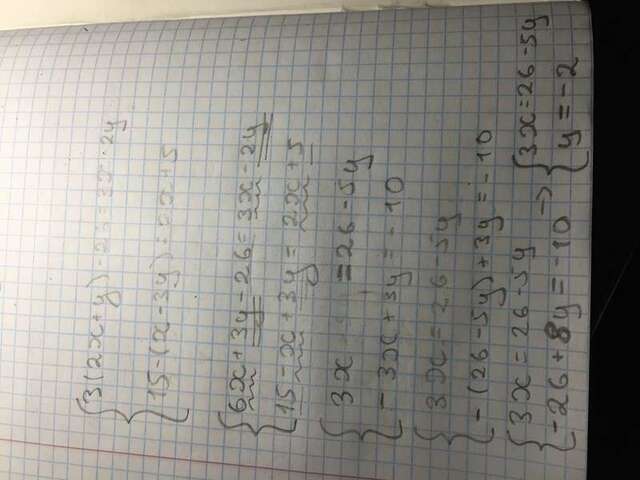 3(2x+y)-26=3x-2y
15-(x-3y)=2x+5
6x+3y-26=3x-2y
15-x+3y=2x+5
3x =26-5y
-3x+3y=-10
3x=26-5y
-(26-5y)+3y=-10
3x=26-5y
-26+8y=-10 → 3x=26-5y
y=-2